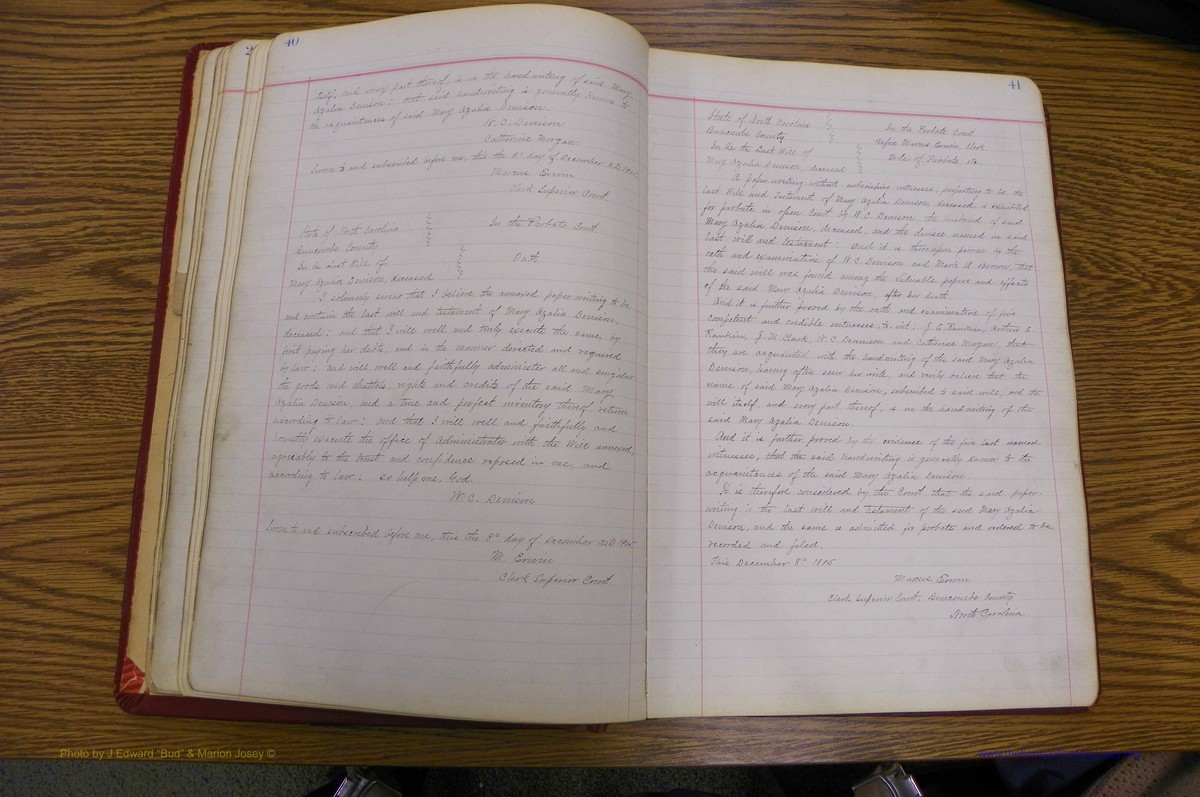 40
itself, and every part thereof, is in the handwriting of said Mary
Azalia Denison: that said handwriting is generally known to
the acquaintances of said Mary Azalia Denison.
W. C. Denison
Catherine Morgan
Sworn to and subscribed before me, this the 8th day of December A.D. 1905.
Marcus Erwin
Clerk Superior Court.
State of North Carolina
Buncombe County
In the Probate Court.
In Re Last Will of
Mary Azalia Denison, deceased
Oath
I solemnly swear that I believe the annexed paper writing to be
and contain the last will and testament of Mary Azalia Denison,
deceased: and that I will well and truly execute the same, by
first paying her debts, and in the manner directed and required
by law: and will well and faithfully administer all and singular
the goods and chattels, rights and credits of the said Mary
Azalia Denison, and a true and perfect inventory thereof return
according to law: and that I will well and faithfully and
honestly execute the office of Administrator with the Will annexed,
agreeably to the trust and confidence reposed in me, and
according to law: so help me, God.
W. C. Denison
Sworn to and subscribed before me, this the 8th day of December A.D. 1905.
M. Erwin
Clerk Superior Court.
41
State of North Carolina
Buncombe County
In Re the Last Will of
Mary Azalia Denison, deceased
In the Probate Court
Before Marcus Erwin, Clerk.
Order of Probate, etc.
A paper writing without subscribing witnesses, purporting to be the
Last Will and Testament of Mary Azalia Denison, deceased, is exhibited
for probate in open Court by W. C. Denison, the husband of said
Mary Azalia Denison, deceased, and the devisee named in said
last will and testament: and it is thereupon proven by the
oath and examination of W. C. Denison and Marie W. Brown, that
the said will was found among the valuable papers and effects
of the said Mary Azalia Denison, after her death.
And it is further proved by the oath and examination of five
competent and credible witnesses, to wit: J. E. Rankin, Arthur E.
Rankin, J. M. Clark, W. C. Dennison and Catherine Morgan, that
they are acquainted with the handwriting of the said Mary Azalia
Denison, having often seen her write, and verily believe that the
name of said Mary Azalia Denison, subscribed to said will, and the
will itself, and every part thereof, is in the handwriting of the
said Mary Azalia Denison.
And it is further proved by the evidence of the five last named
witnesses, that the said handwriting is generally known to the
acquaintances of the said Mary Azalia Denison.
It is therefore considered by the Court that the said paper-
writing is the last will and testament of the said Mary Azalia
Denison, and the same is admitted for probate and ordered to be
recorded and filed.
This December 8th 1905
Marcus Erwin
Clerk Superior Court, Buncombe County
North Carolina
Photo by J Edward "Bud" & Marion Josey ©